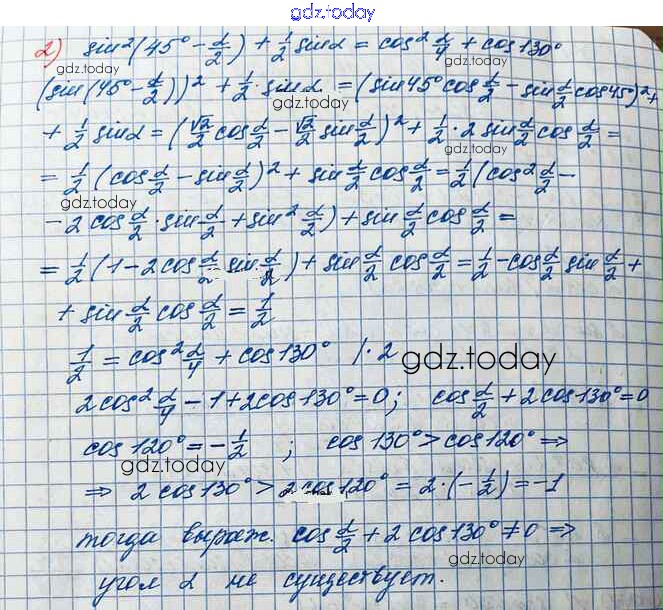 gdz.today
2) sin²(45° - α/2) + 1/2 sinα = cos² α/4 + cos130°
gdz.today
(sin(45° - α/2))² + 1/2 · sin α = (sin45° cos α/2 - sin α/2 cos45°)² +
gdz.today
+ 1/2 sinα = (√2/2 cos α/2 - √2/2 sin α/2)² + 1/2 · 2 sin α/2 cos α/2 =
gdz.today
= 1/2 (cos α/2 - sin α/2)² + sin α/2 cos α/2 = 1/2 (cos² α/2 -
gdz.today
- 2 cos α/2 · sin α/2 + sin² α/2) + sin α/2 cos α/2 =
= 1/2 (1 - 2cos α/2 sin α/2) + sin α/2 cos α/2 = 1/2 - cos α/2 sin α/2 +
+ sin α/2 cos α/2 = 1/2
1/2 = cos² α/4 + cos130° |·2
gdz.today
2cos² α/4 - 1 + 2cos130° = 0; cos α/2 + 2cos130° = 0
gdz.today
cos120° = -1/2 ; cos130° > cos120° ⇒
gdz.today
⇒ 2cos130° > 2cos120° = 2·(-1/2) = -1
тогда выраж. cos α/2 + 2cos130° ≠ 0 ⇒
gdz.today
угол α не существует.